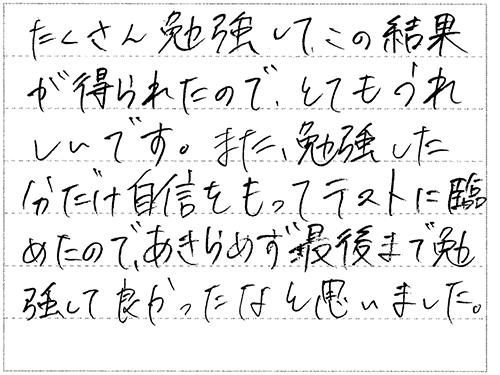 たくさん勉強して、この結果
が得られたので、とてもうれ
しいです。また、勉強した
分だけ自信をもってテストに臨
めたので、あきらめず最後まで勉
強して良かったなと思いました。